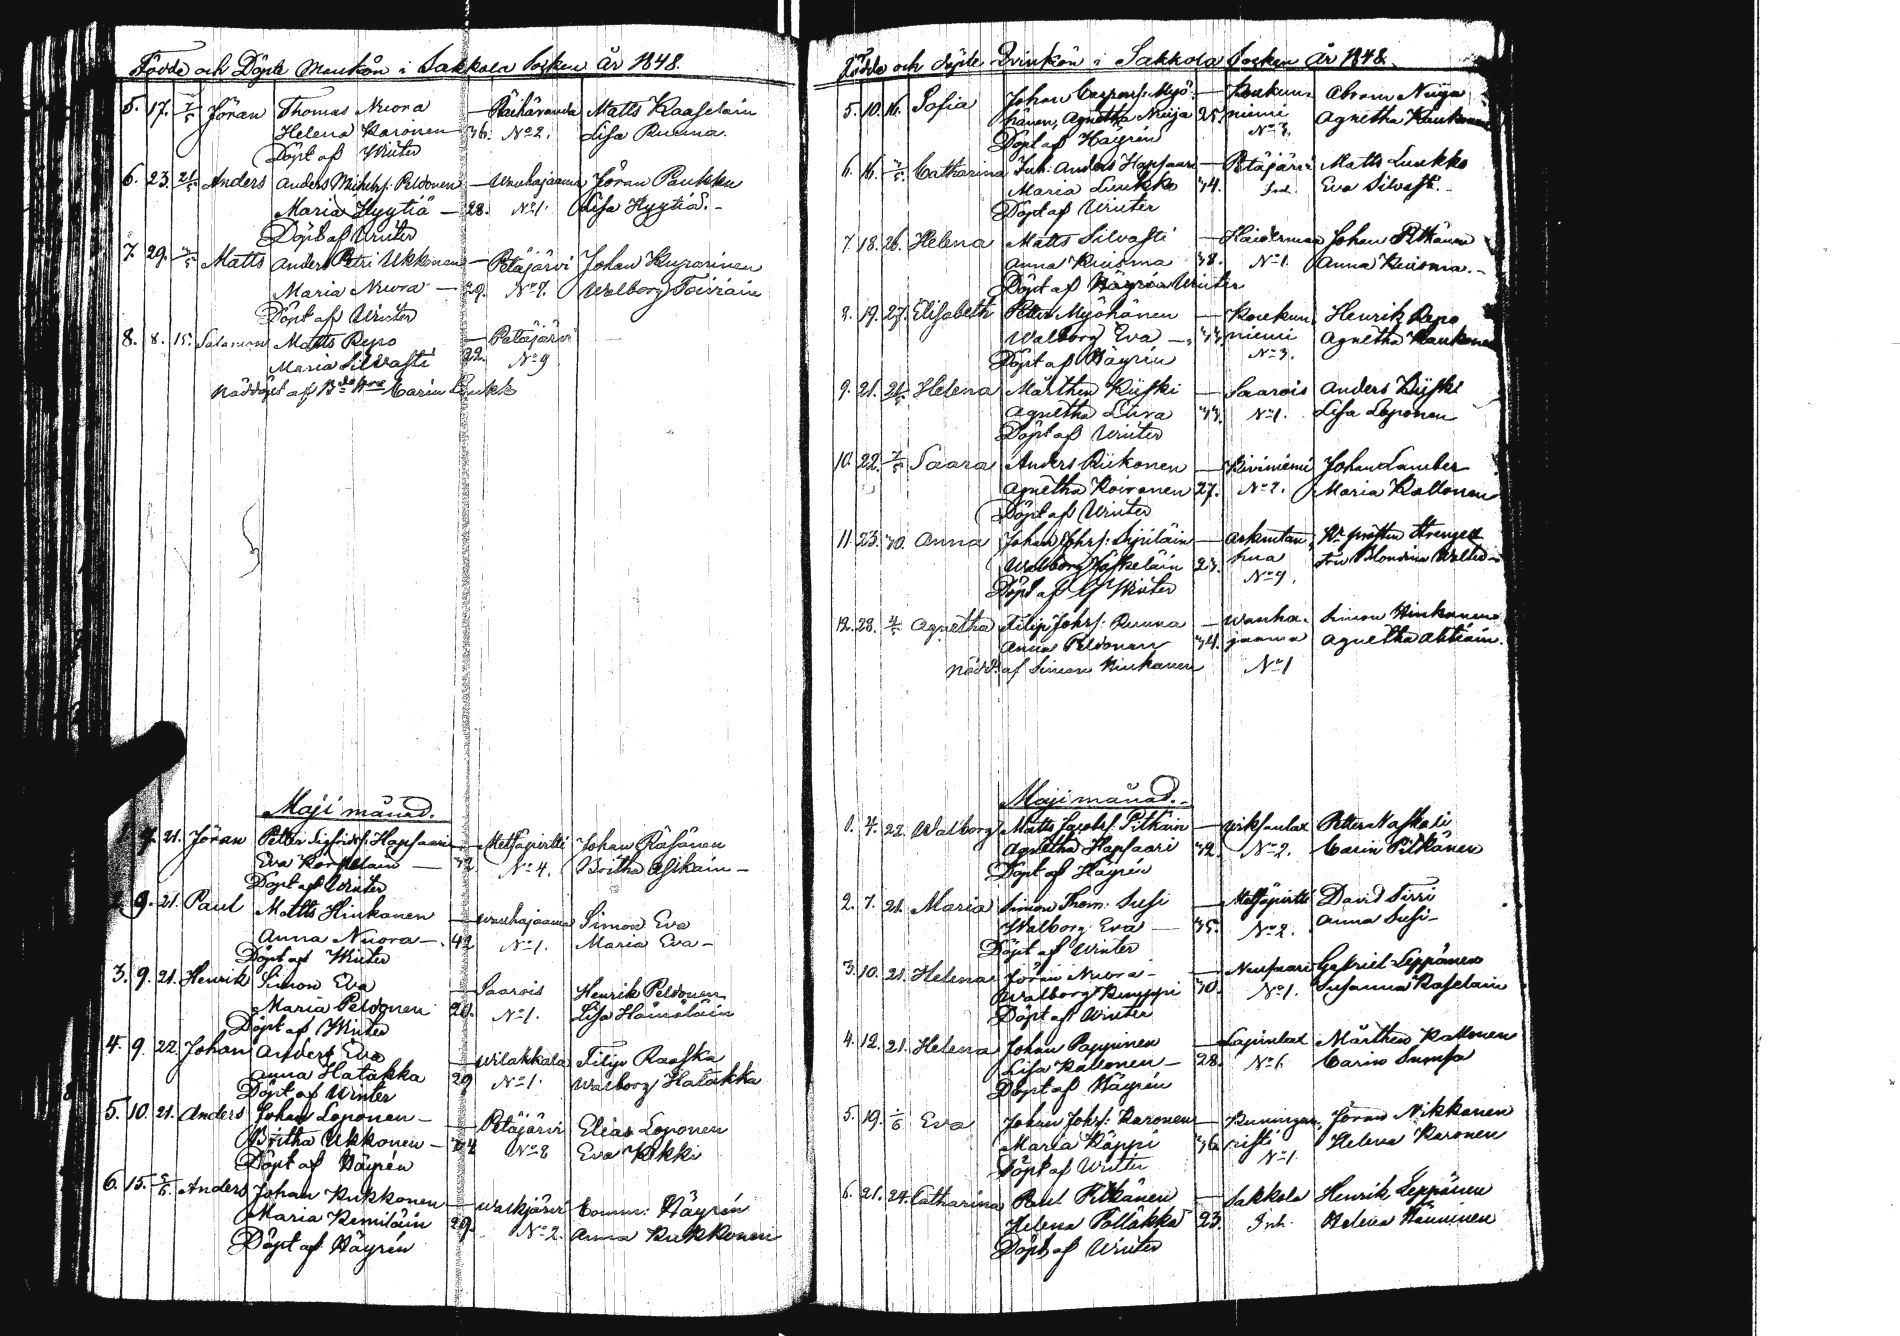 Födde och Döpte Mankön i Sakkola Socken År 1848.
5. 17. 7/5 Jöran Thomas Nuora — Räihäranda Matts Kaaselain
Helena Karonen 36. No 2. Lisa Ruuna.
Döpt af Winter
6. 23. 21/5 Anders Anders Michelss: Peldonen — Wanhajaama Jöran Paukku
Maria Hyytiä — 28. No 1. Lisa Hyytiä. -
Döpt af Winter
7. 29. Matts Anders Petri Ukkonen — Petäjärvi Johan Kuparinen
Maria Nuora — 29. No 7. Walborg Toiviain
Döpt af Winter
8. 8. 15. Salamon Matts Repo — Petäjärvi
Maria Silvasti 22. No 9
Nöddöpt af Carin Lukk
Maji månad.
1. 7. 21. Jöran Petter Sigfridss: Hapsaari — Metsäpirtti Johan Räsänen
Eva Korpelain — 32 No 4. Britha Asikain —
Döpt af Winter
9. 21. Paul Matts Hinkanen — Wanhajaama Simon Eva
Anna Nuora — 42 No 1. Maria Eva —
Döpt af Winter
3. 9. 21. Henrik Simon Eva — Saarois Henrik Peldonen
Maria Peldonen 20. No 1. Lisa Hämäläin
Döpt af Winter
4. 9. 22. Johan Anders Eva — Wilakkala Filip Raaska
Anna Hatakka 29 No 1. Walborg Hatakka
Döpt af Winter
5. 10. 21. Anders Johan Loponen — Petäjärvi Elias Loponen
Britha Ukkonen — 34 No 8 Eva Kokki
Döpt af Häyrén
6. 15. 5/6. Anders Johan Kukkonen — Walkjärvi Comm: Häyrén
Maria Kemiläin 29. No 2. Anna Kukkonen
Döpt af Häyrén
Födde och döpte Qvinkön i Sakkola Socken År 1848.
5. 10. 16. Sofia Johan Caspers: Myö- — Koukun- Abram Nuija
hänen, Agnetha Nuija 25. niemi Agnetha Kaukonen
Döpt af Häyrén No 3.
6. 16. 7/5. Catharina Inh: Anders Hapsaari — Petäjärvi Matts Luukko
Maria Luukko 34. Inh. Eva Silvasti. -
Döpt af Winter
7. 18. 26. Helena Matts Silvasti — Haiderman Johan Pitkänen
Anna Kuisma 38. No 1. Anna Kuisma. -
Döpt af Häyrén Winter
8. 19. 27. Elisabeth Petter Myöhänen — Koukun- Henrik Repo
Walborg Eva — 33 niemi Agnetha Kaukonen
Döpt af Häyrén No 3.
9. 21. 24/5. Helena Mårthen Kiiski — Saarois Anders Kiiski
Agnetha Liiva 33. No 1. Lisa Loponen
Döpt af Winter
10. 22. 7/5 Saara Anders Riikonen — Kiviniemi Johan Lamber
Agnetha Koironen 27. No 2. Maria Kaltonen
Döpt af Winter
11. 23. 30. Anna Johan Johss: Sipiläin — Arkuntan- Hr Strengell
Walborg Kaskeläin 23. hua Fru Blondina
Döpt af Winter No 9.
12. 28. 4/5 Agnetha Filip Johss: Ruuna — Wanha- Simon Hinkanen
Anna Peldonen 34. jaama Agnetha Ahtiain.
nödd. af Simon Hinkanen No 1
Maji månad. -
1. 4. 22. Walborg Matts Jacobss: Pitkäin — Wiksanlax Petter Naskali
Agnetha Hapsaari 32. No 2. Carin Pitkänen
Döpt af Häyrén
2. 7. 21. Maria Simon Thom: Susi — Metsäpirtti David Sirri
Walborg Eva — 35. No 2. Anna Susi —
Döpt af Winter
3. 10. 21. Helena Jöran Nuora — Neusaari Gabriel Leppänen
Walborg Kuuppi 30. No 1. Susanna Kaselain
Döpt af Winter
4. 12. 21. Helena Johan Pappinen — Lapinlax Mårthen Kaltonen
Lisa Kaltonen — 28. No 6. Carin Sumpa
Döpt af Häyrén
5. 19. 1/6 Eva Johan Johss: Karonen — Kuningan- Jöran Nikkanen
Maria Käppi 36 risti Helena Karonen
Döpt af Winter No 1
6. 21. 24. Catharina Paul Pitkänen — Sakkola Henrik Leppänen
Helena Pölläkkä 23. Inh. Helena Hänninen
Döpt af Winter